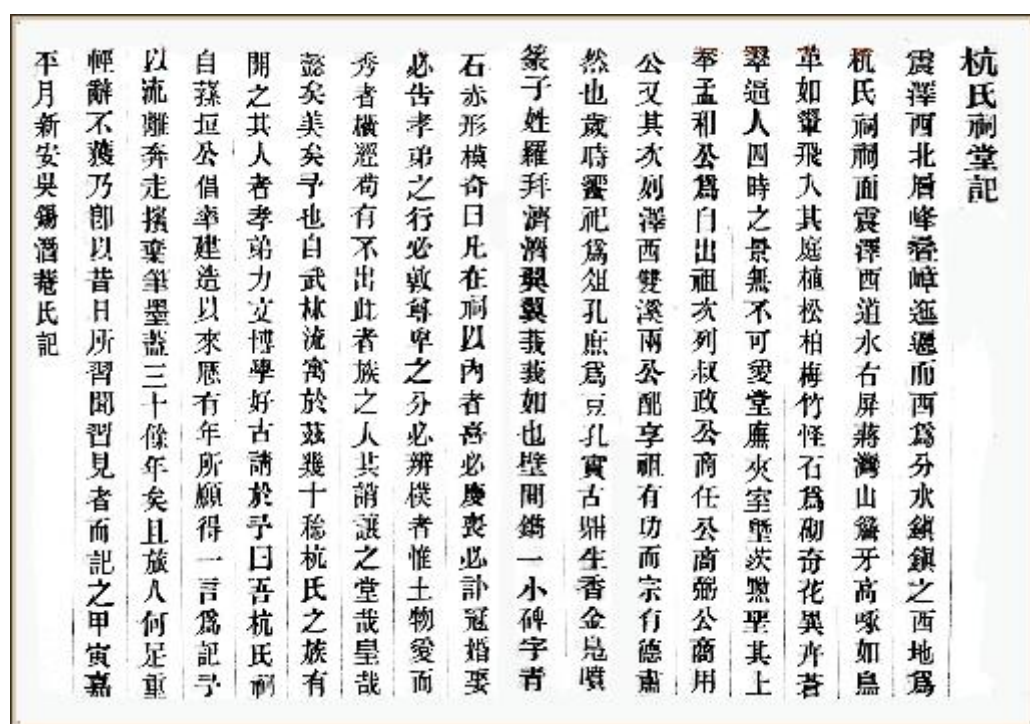 杭氏祠堂記
震澤西北層峰疊嶂迤邐而西爲分水鎭鎭之西地爲
杭氏祠祠面震澤西道水右屏蔣灣山簷牙高啄如鳥
革如翬飛入其庭植松柏梅竹怪石爲砌奇花異卉蒼
翠逼人四時之景無不可愛堂廡夾室塈茨黝堊其上
奉孟和公爲自出祖次列叔政公商任公商弼公商用
公又其次則澤西雙溪兩公配享祖有功而宗有德肅
然也歲時饗祀爲俎孔庶爲豆孔實古鼎生香金晃噴
篆子姓羅拜濟濟翼翼莪莪如也壁間鐫一小碑字青
石赤形模奇曰凡在祠以內者喜必慶喪必訃冠婚娶
必告孝弟之行必敦尊卑之分必辨樸者惟土物愛而
秀者橫經苟有不出此者族之人共誚讓之堂哉皇哉
懿矣美矣予也自武林流寓於茲幾十稔杭氏之族有
開之其人者孝弟力文博學好古請於予曰吾杭氏祠
自蓀垣公倡率建造以來歷有年所願得一言爲記予
以流離奔走擯棄筆墨蓋三十餘年矣且族人何足重
輕辭不獲乃卽以昔日所習聞習見者而記之甲寅嘉
平月新安吳錫潛菴氏記